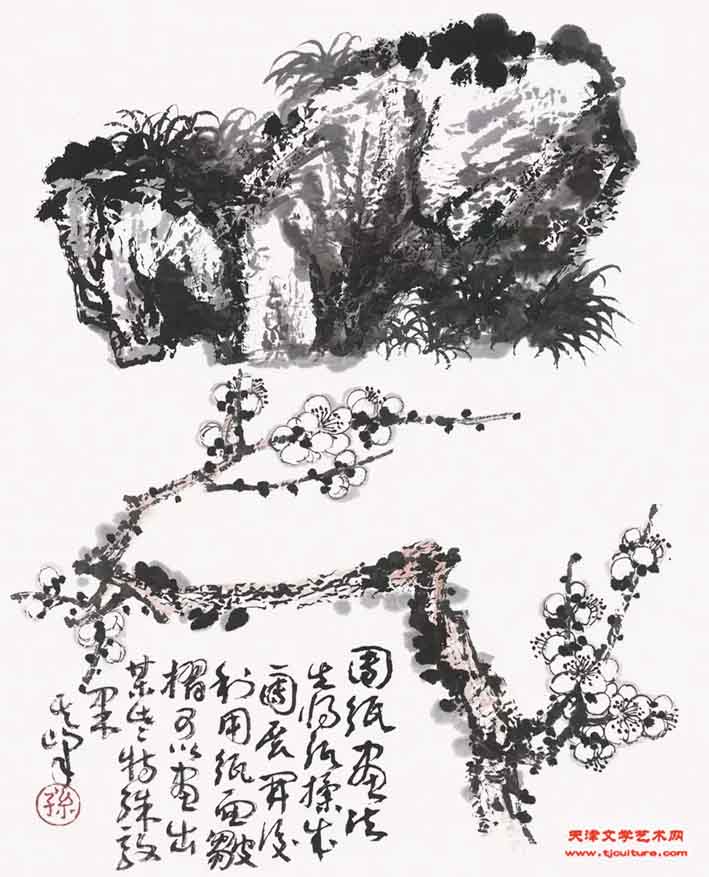 團紙畫法
先將紙揉成
團展開後
利用紙面皺
褶可以畫出
某些特殊效
果
其峰
孫
天津文学艺术网
www.tjculture.com